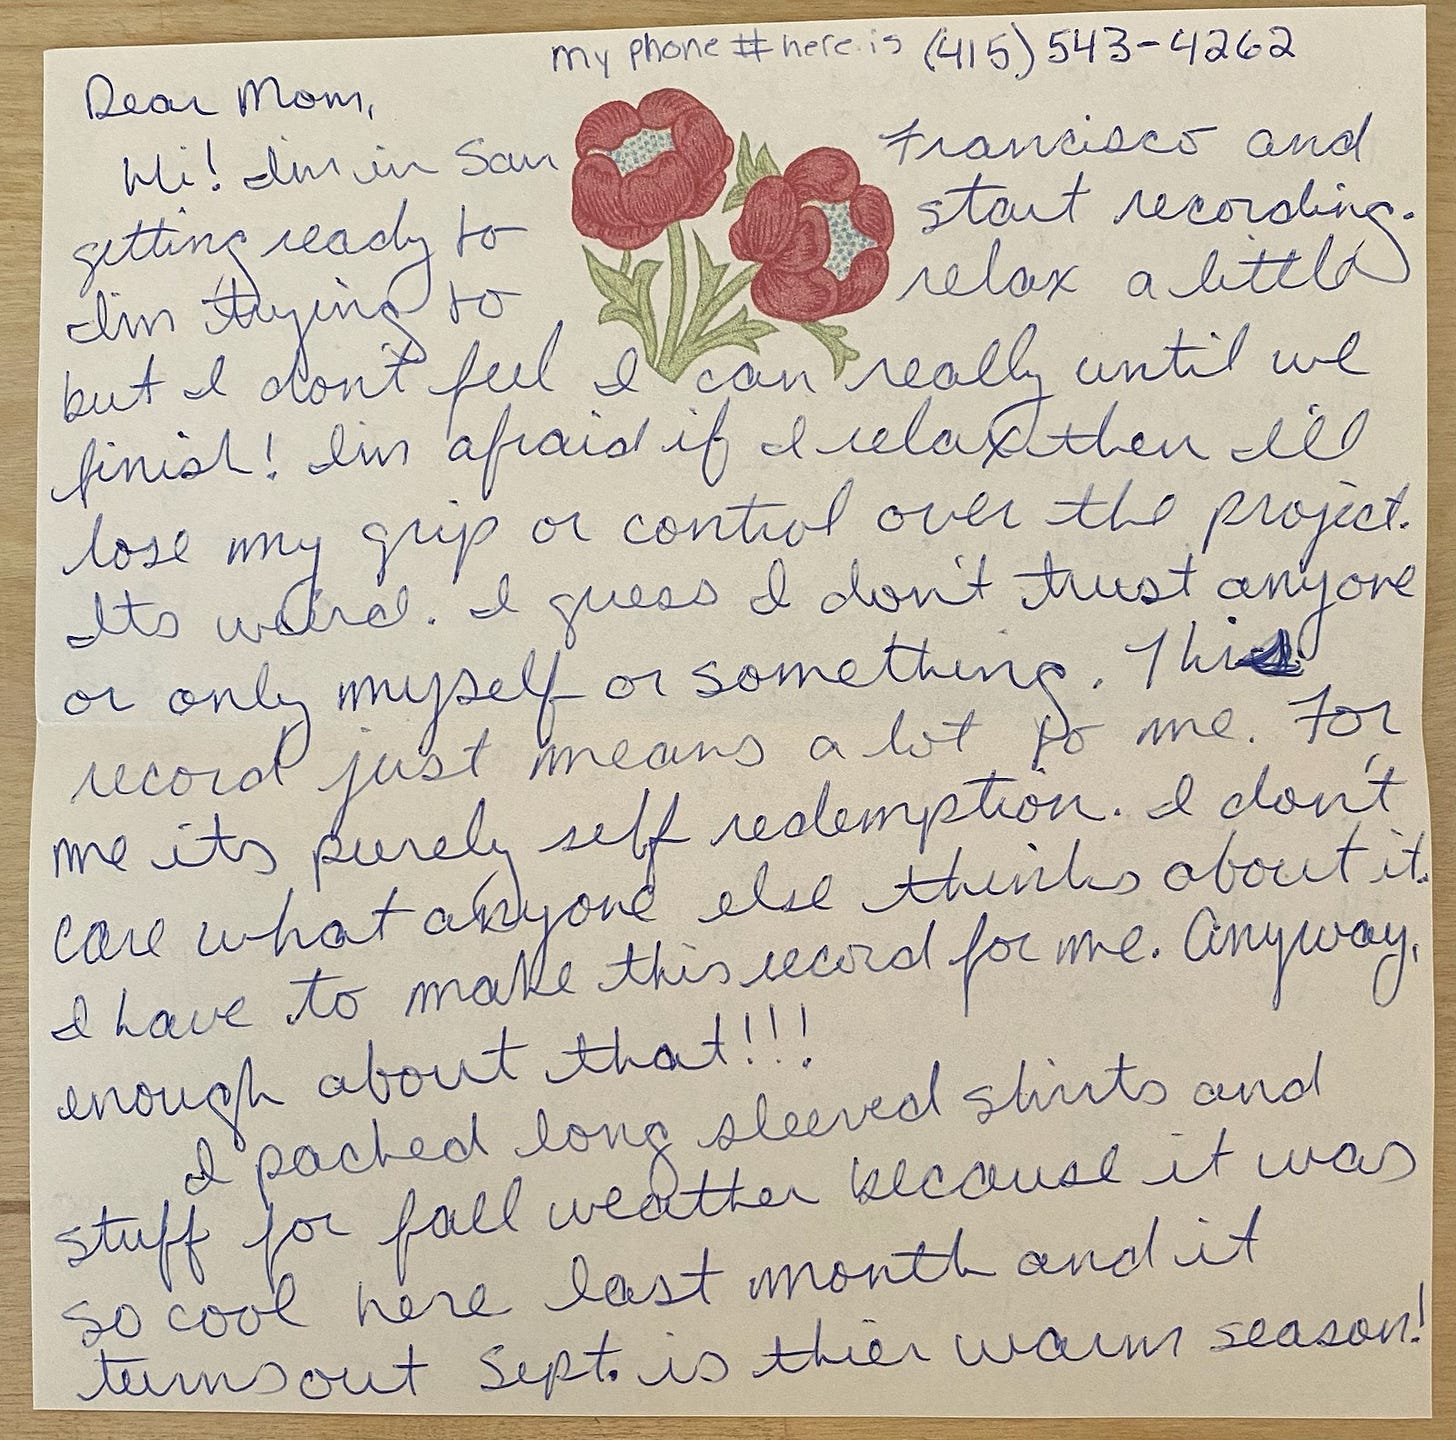 my phone # here is (415) 543-4262
Dear Mom,
Hi! I'm in San Francisco and
getting ready to start recording.
I'm trying to relax a little
but I don't feel I can really until we
finish! I'm afraid if I relax then I'll
lose my grip or control over the project.
Its weird. I guess I don't trust anyone
or only myself or something. This
record just means a lot to me. For
me its purely self redemption. I don't
care what anyone else thinks about it.
I have to make this record for me. Anyway,
enough about that!!!
I packed long sleeved shirts and
stuff for fall weather because it was
so cool here last month and it
turns out Sept. is thier warm season!